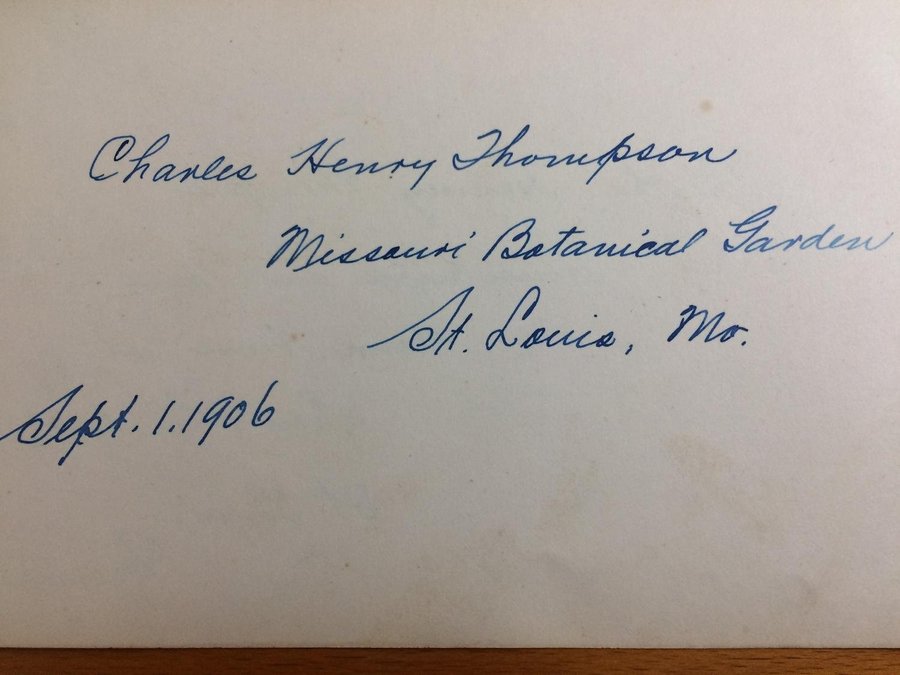 Charles Henry Thompson
Missouri Botanical Garden
St. Louis, Mo.
Sept. 1. 1906